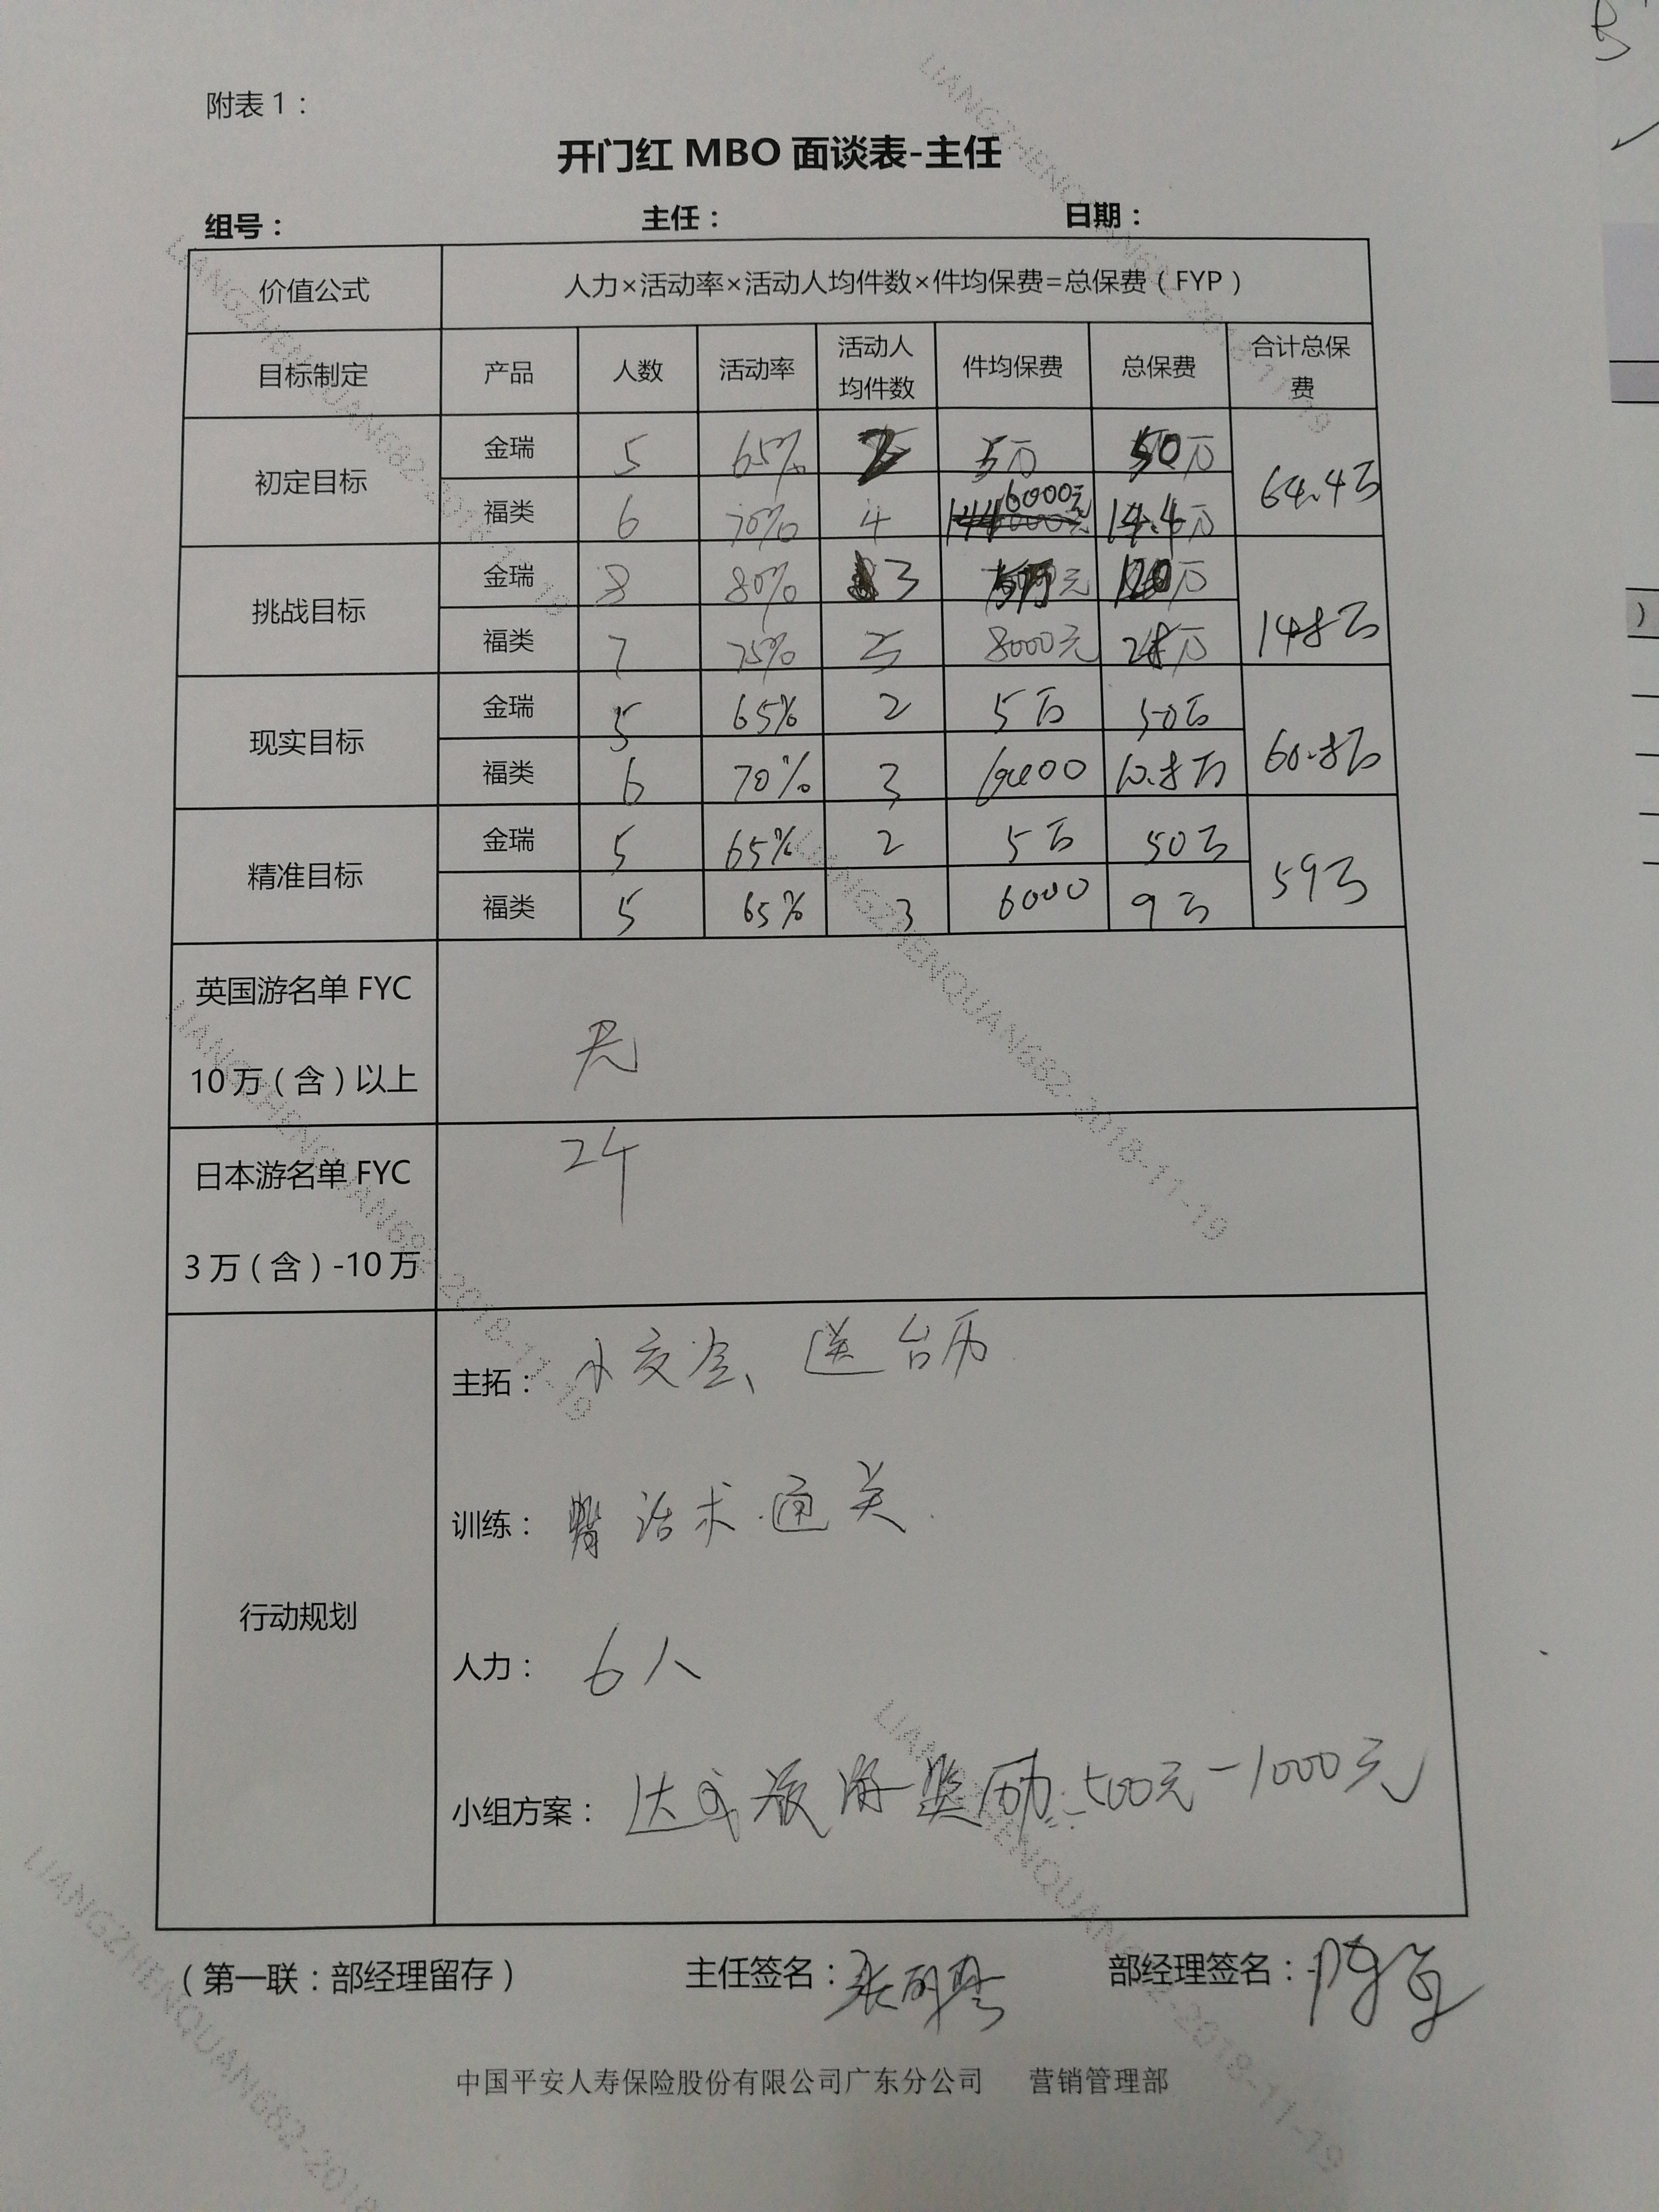 附表1：
开门红 MBO 面谈表-主任
组号： 主任： 日期：
价值公式 人力×活动率×活动人均件数×件均保费=总保费（FYP）
目标制定 产品 人数 活动率 活动人均件数 件均保费 总保费 合计总保费
初定目标 金瑞 5 65% 2 5万 50万 64.4万
福类 6 70% 4 6000元 14.4万
挑战目标 金瑞 8 80% 3 元 120万 148万
福类 7 75% 5 8000元 28万
现实目标 金瑞 5 65% 2 5万 50万 60.8万
福类 6 70% 3 6000 10.8万
精准目标 金瑞 5 65% 2 5万 50万 59万
福类 5 65% 3 6000 9万
英国游名单 FYC
10万（含）以上
无
日本游名单 FYC
3万（含）-10万
2个
行动规划
主拓： 小交会、送台历
训练： 背话术.通关.
人力： 6人
小组方案： 达成旅游奖励:500元-1000元
（第一联：部经理留存） 主任签名： 部经理签名：
中国平安人寿保险股份有限公司广东分公司 营销管理部
LIANGZHENQUAN682-2018-11-19
LIANGZHENQUAN682-2018-11-19
LIANGZHENQUAN682-2018-11-19
LIANGZHENQUAN682-2018-11-19
LIANGZHENQUAN682-2018-11-19
LIANGZHENQUAN682-2018